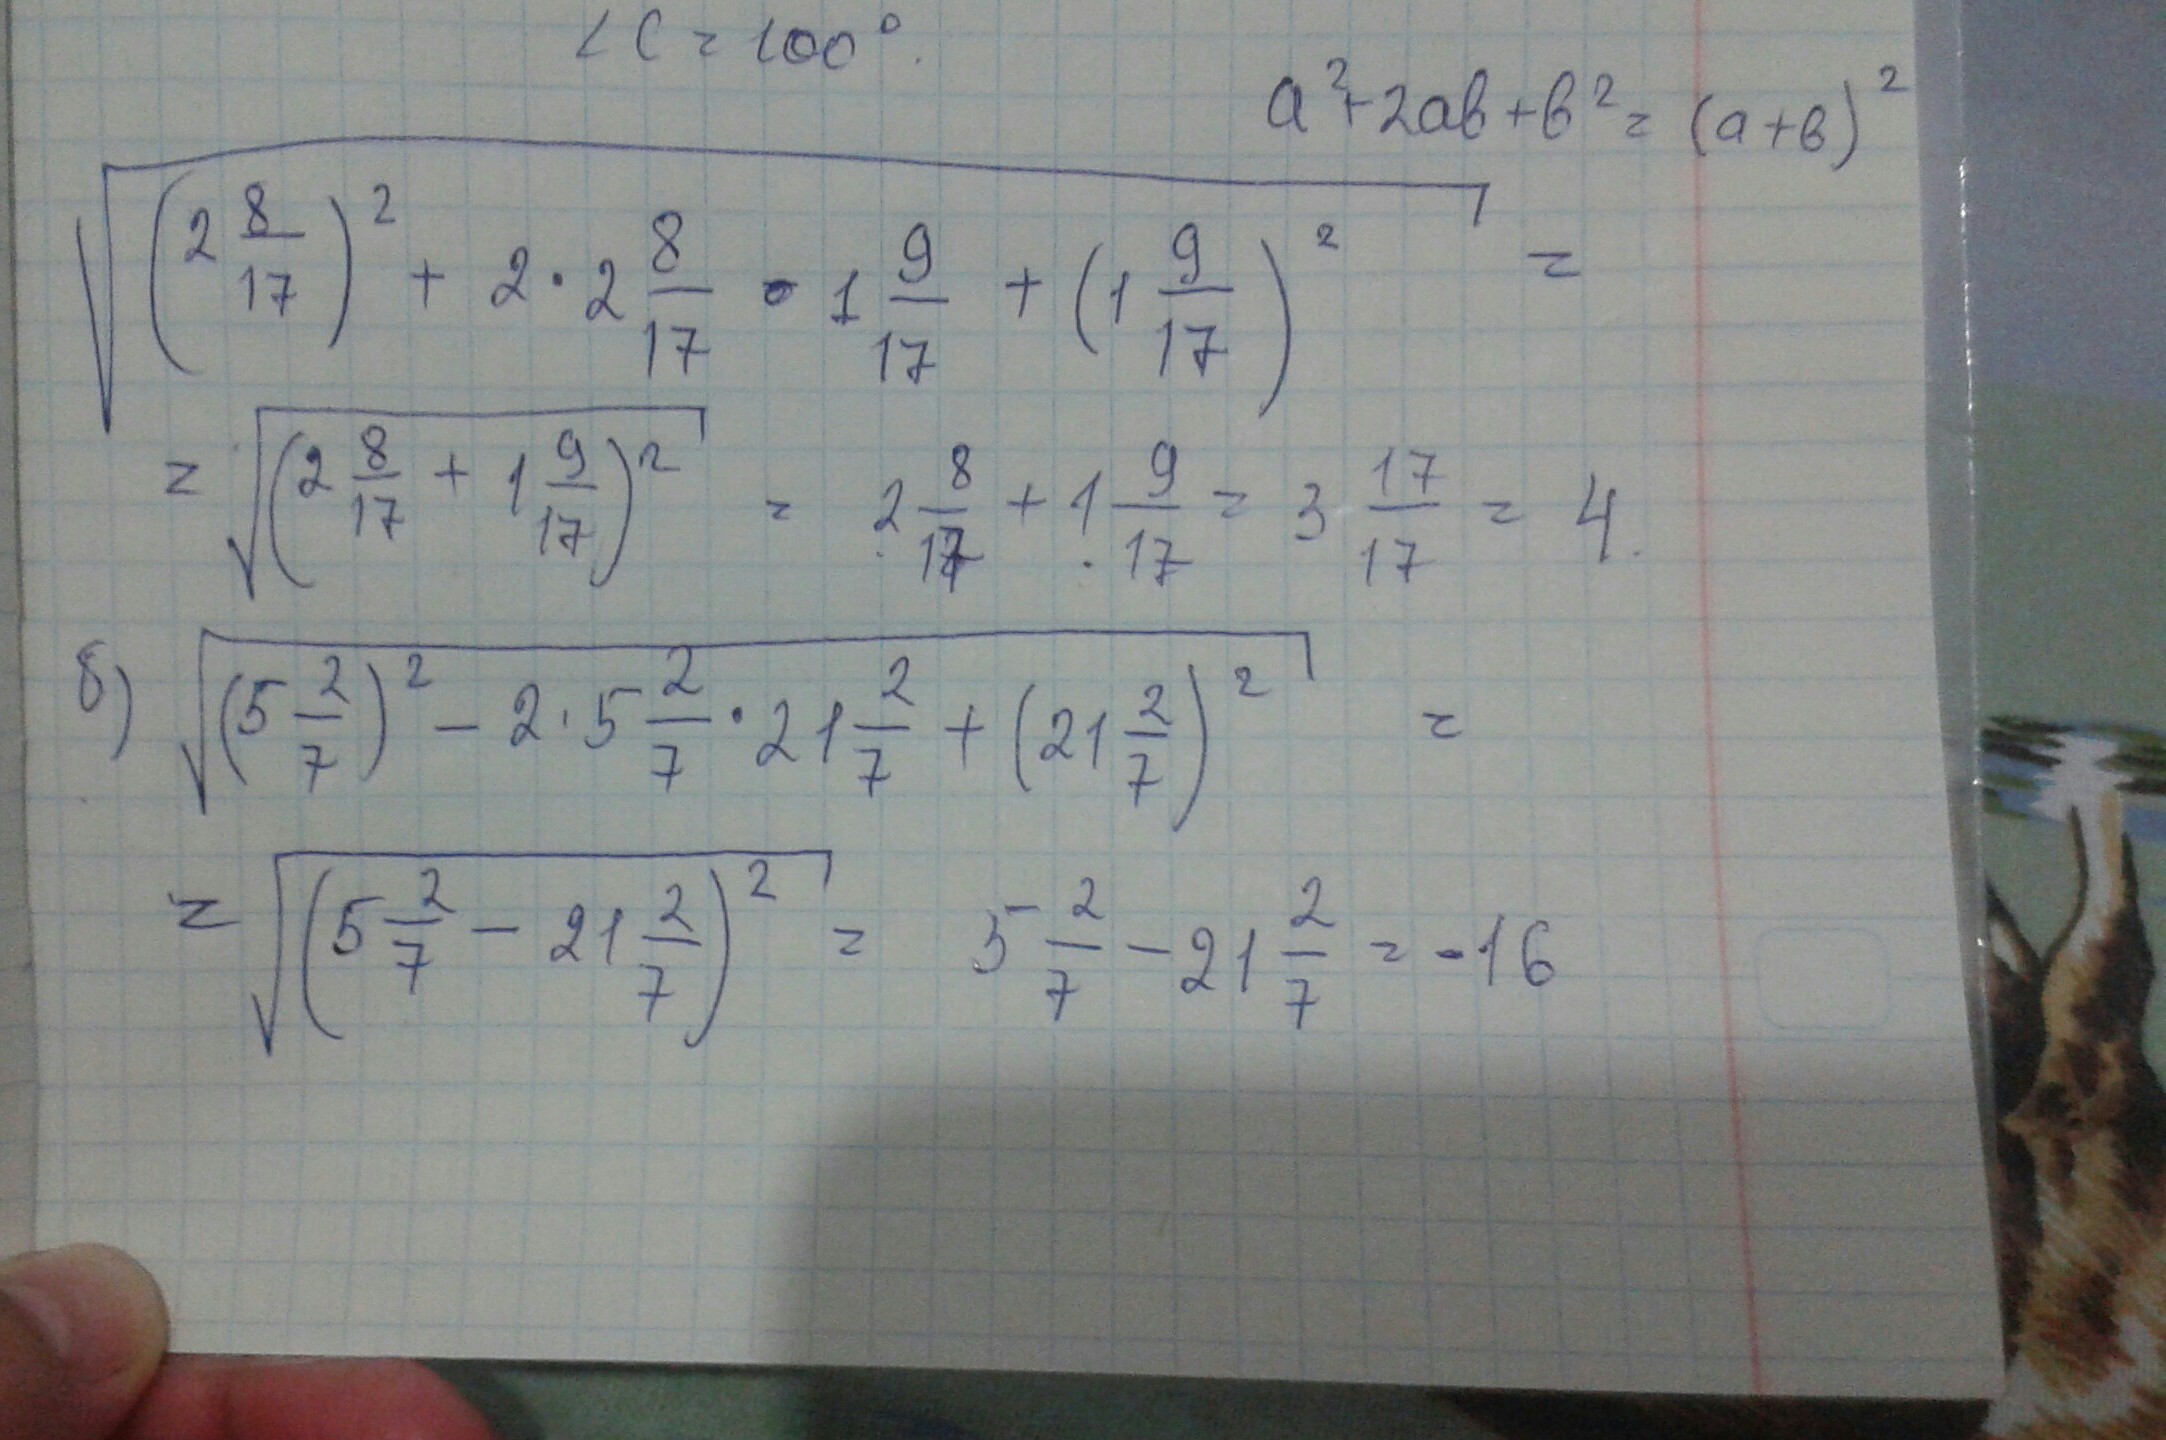 ∠C = 100°.
a² + 2ab + b² = (a + b)²
√((2 8/17)² + 2 · 2 8/17 · 1 9/17 + (1 9/17)²) =
= √((2 8/17 + 1 9/17)²) = 2 8/17 + 1 9/17 = 3 17/17 = 4.
б) √((5 2/7)² - 2 · 5 2/7 · 21 2/7 + (21 2/7)²) =
= √((5 2/7 - 21 2/7)²) = 5 2/7 - 21 2/7 = -16